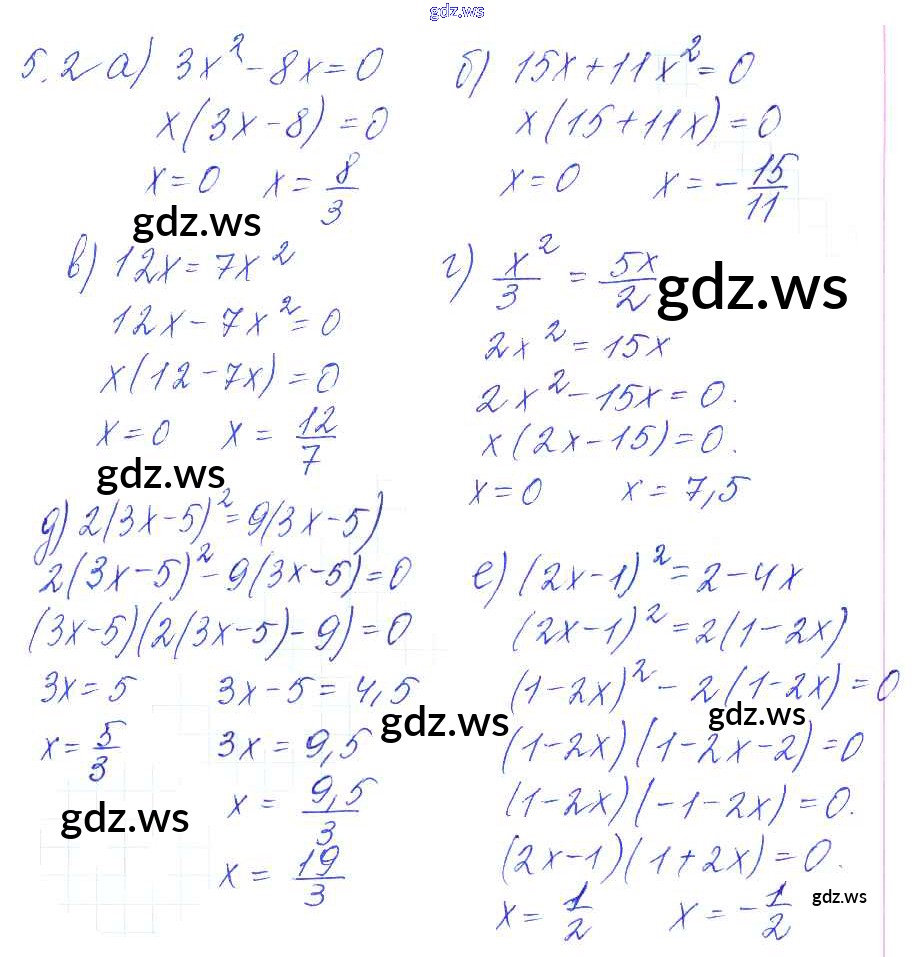 gdz.ws
5.2 а) 3x² - 8x = 0
x(3x - 8) = 0
x = 0 x = 8/3
gdz.ws
б) 15x + 11x² = 0
x(15 + 11x) = 0
x = 0 x = -15/11
в) 12x = 7x²
12x - 7x² = 0
x(12 - 7x) = 0
x = 0 x = 12/7
gdz.ws
г) x²/3 = 5x/2
gdz.ws
2x² = 15x
2x² - 15x = 0.
x(2x - 15) = 0.
x = 0 x = 7,5
д) 2(3x - 5)² = 9(3x - 5)
2(3x - 5)² - 9(3x - 5) = 0
(3x - 5)(2(3x - 5) - 9) = 0
3x = 5 3x - 5 = 4,5
gdz.ws
x = 5/3 3x = 9,5
x = 9,5/3
gdz.ws
x = 19/3
е) (2x - 1)² = 2 - 4x
(2x - 1)² = 2(1 - 2x)
(1 - 2x)² - 2(1 - 2x) = 0
gdz.ws
(1 - 2x)(1 - 2x - 2) = 0
(1 - 2x)(-1 - 2x) = 0.
(2x - 1)(1 + 2x) = 0.
x = 1/2 x = -1/2
gdz.ws